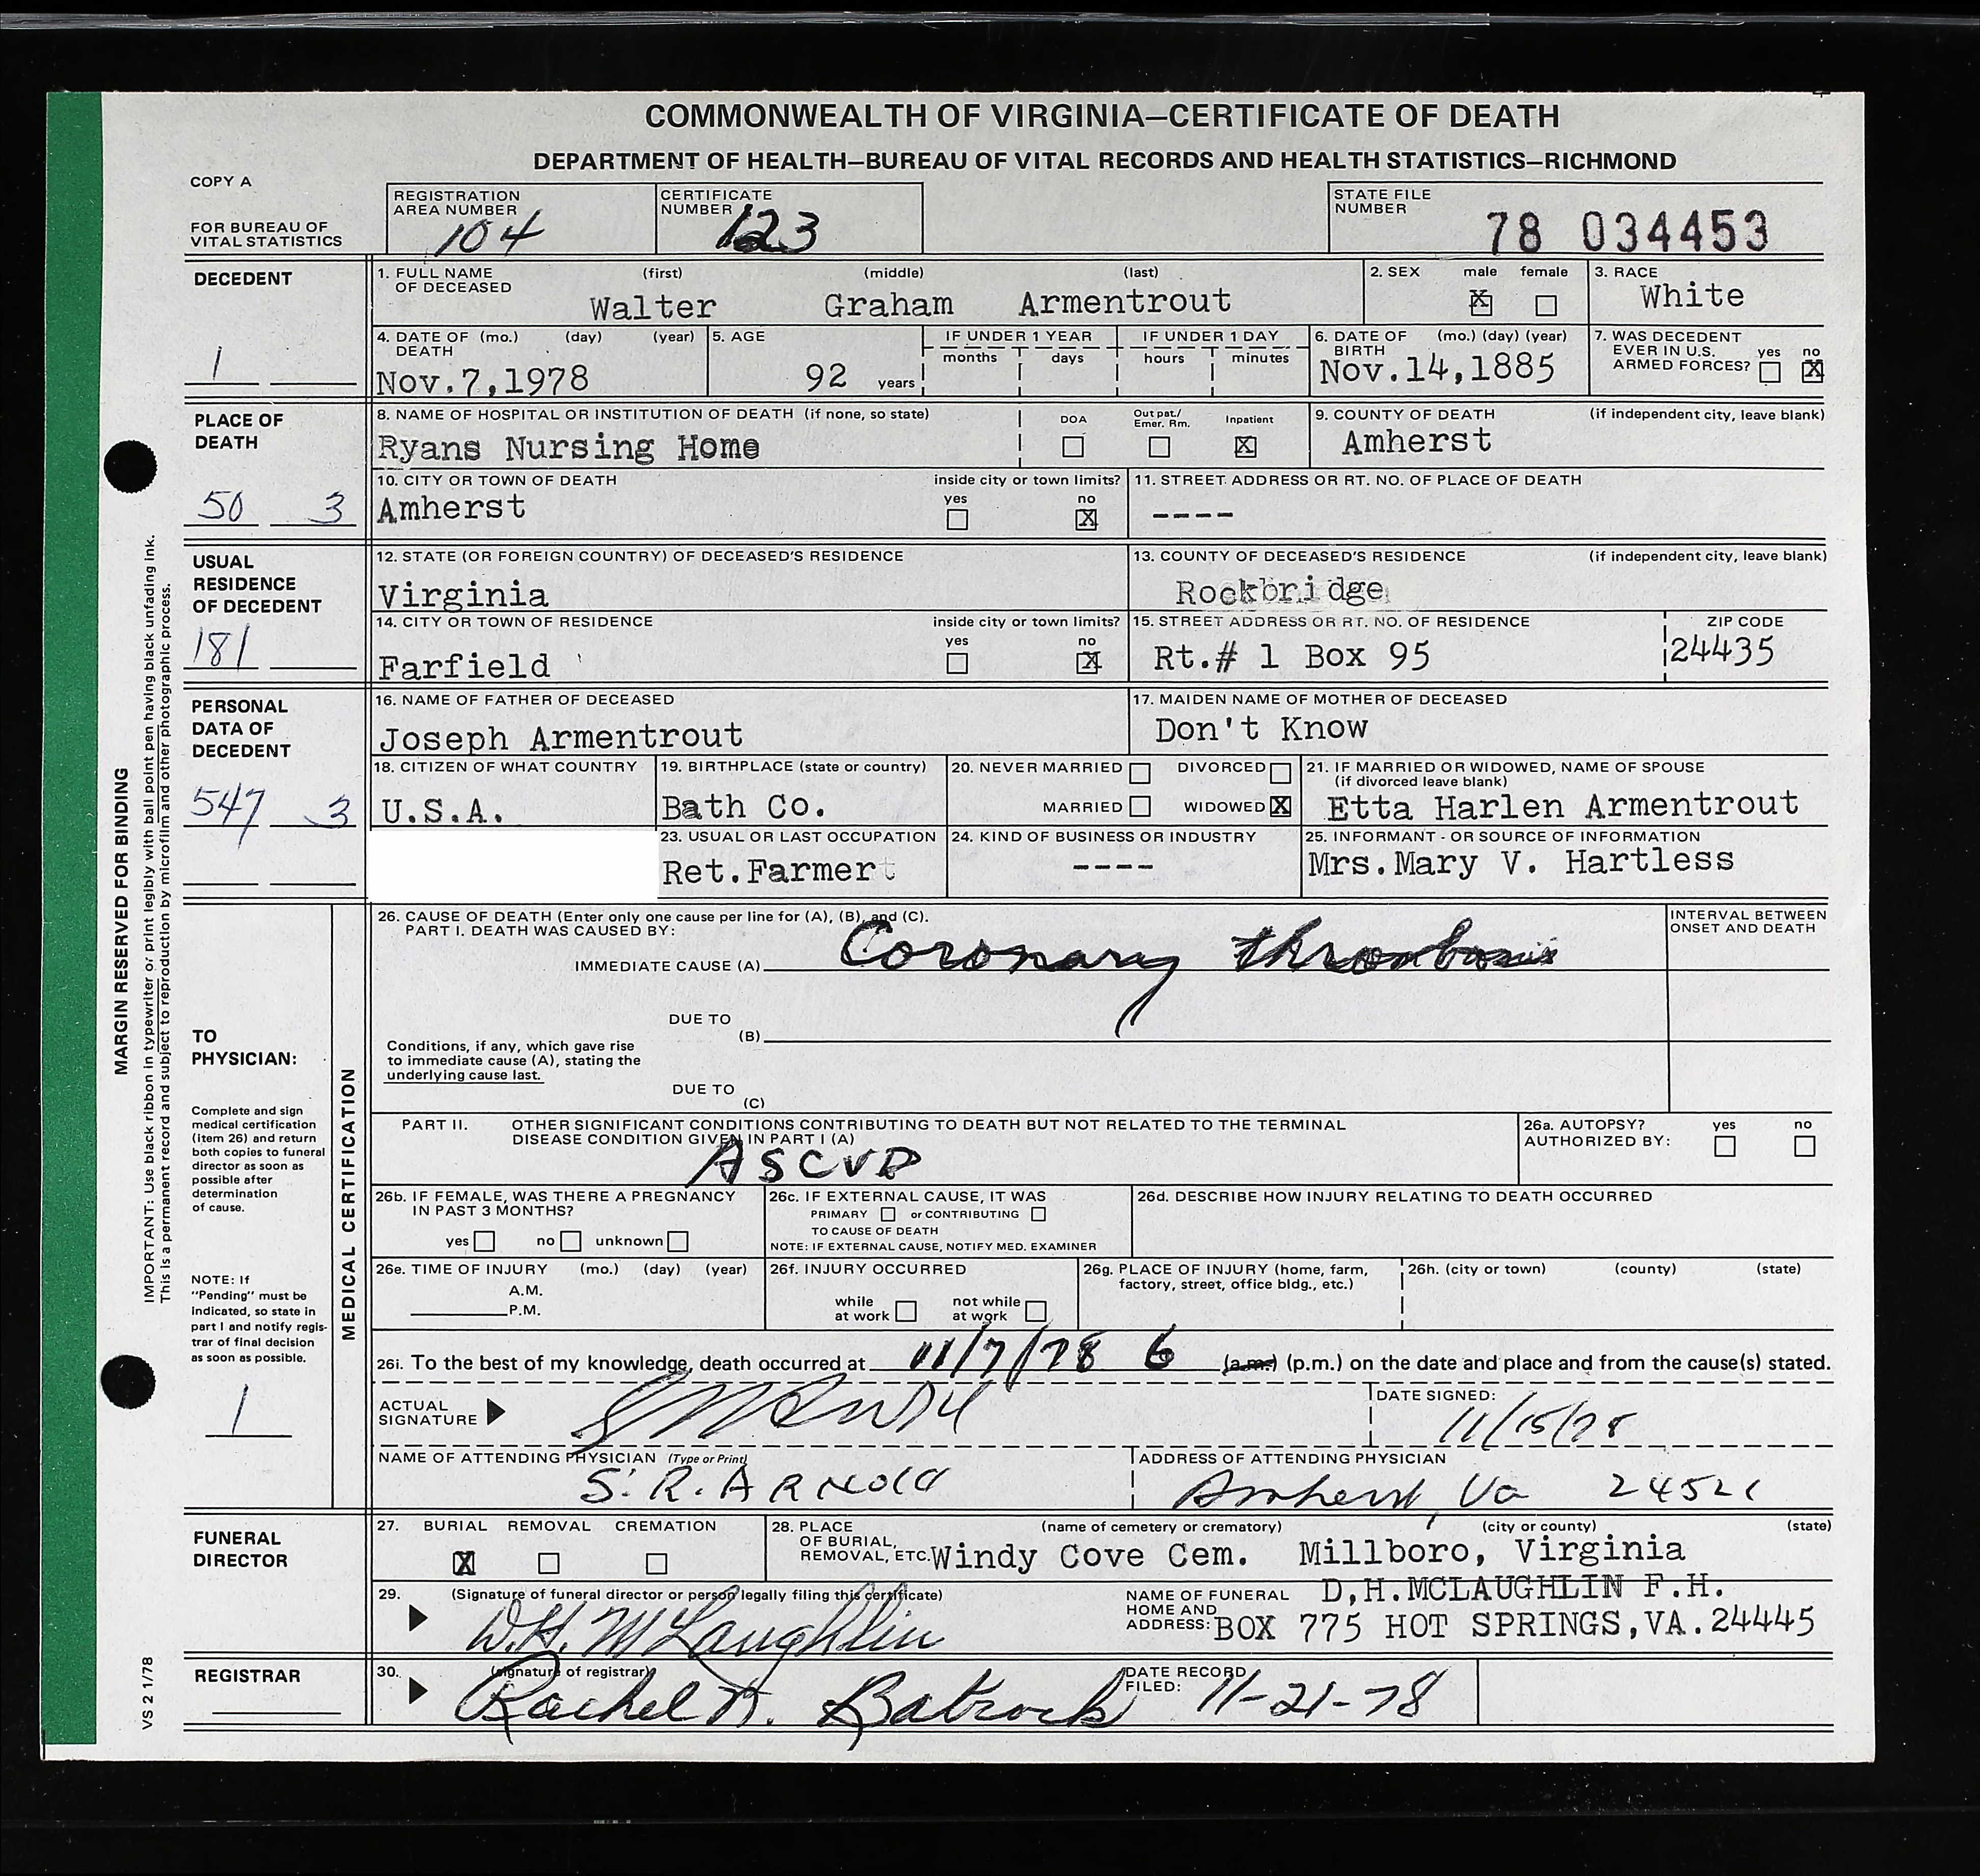 COMMONWEALTH OF VIRGINIA—CERTIFICATE OF DEATH
DEPARTMENT OF HEALTH—BUREAU OF VITAL RECORDS AND HEALTH STATISTICS—RICHMOND
COPY A
FOR BUREAU OF
VITAL STATISTICS
REGISTRATION
AREA NUMBER
104
CERTIFICATE
NUMBER
123
STATE FILE
NUMBER
78 034453
DECEDENT
1
1. FULL NAME (first) (middle) (last)
OF DECEASED
Walter Graham Armentrout
2. SEX male female
X
3. RACE
White
4. DATE OF (mo.) (day) (year)
DEATH
Nov.7,1978
5. AGE
92 years
IF UNDER 1 YEAR
months days
IF UNDER 1 DAY
hours minutes
6. DATE OF (mo.) (day) (year)
BIRTH
Nov.14,1885
7. WAS DECEDENT
EVER IN U.S. yes no
ARMED FORCES? X
PLACE OF
DEATH
50 3
8. NAME OF HOSPITAL OR INSTITUTION OF DEATH (if none, so state)
Ryans Nursing Home
DOA
Out pat./
Emer. Rm.
Inpatient
X
9. COUNTY OF DEATH (if independent city, leave blank)
Amherst
10. CITY OR TOWN OF DEATH inside city or town limits?
yes no
Amherst X
11. STREET ADDRESS OR RT. NO. OF PLACE OF DEATH
----
USUAL
RESIDENCE
OF DECEDENT
181
12. STATE (OR FOREIGN COUNTRY) OF DECEASED'S RESIDENCE
Virginia
13. COUNTY OF DECEASED'S RESIDENCE (if independent city, leave blank)
Rockbridge
14. CITY OR TOWN OF RESIDENCE inside city or town limits?
yes no
Farfield X
15. STREET ADDRESS OR RT. NO. OF RESIDENCE ZIP CODE
Rt.# 1 Box 95 24435
PERSONAL
DATA OF
DECEDENT
547 3
16. NAME OF FATHER OF DECEASED
Joseph Armentrout
17. MAIDEN NAME OF MOTHER OF DECEASED
Don't Know
18. CITIZEN OF WHAT COUNTRY
U.S.A.
19. BIRTHPLACE (state or country)
Bath Co.
20. NEVER MARRIED DIVORCED
MARRIED WIDOWED X
21. IF MARRIED OR WIDOWED, NAME OF SPOUSE
(if divorced leave blank)
Etta Harlen Armentrout
23. USUAL OR LAST OCCUPATION
Ret.Farmer
24. KIND OF BUSINESS OR INDUSTRY
----
25. INFORMANT - OR SOURCE OF INFORMATION
Mrs.Mary V. Hartless
MARGIN RESERVED FOR BINDING
IMPORTANT: Use black ribbon in typewriter or print legibly with ball point pen having black unfading ink.
This is a permanent record and subject to reproduction by microfilm and other photographic process.
VS 2 1/78
TO
PHYSICIAN:
Complete and sign
medical certification
(item 26) and return
both copies to funeral
director as soon as
possible after
determination
of cause.
NOTE: If
"Pending" must be
indicated, so state in
part I and notify regis-
trar of final decision
as soon as possible.
1
MEDICAL CERTIFICATION
26. CAUSE OF DEATH (Enter only one cause per line for (A), (B), and (C).
PART I. DEATH WAS CAUSED BY:
IMMEDIATE CAUSE (A) Coronary thrombosis
INTERVAL BETWEEN
ONSET AND DEATH
DUE TO
(B)
Conditions, if any, which gave rise
to immediate cause (A), stating the
underlying cause last.
DUE TO
(C)
PART II. OTHER SIGNIFICANT CONDITIONS CONTRIBUTING TO DEATH BUT NOT RELATED TO THE TERMINAL
DISEASE CONDITION GIVEN IN PART I (A)
ASCVD
26a. AUTOPSY? yes no
AUTHORIZED BY:
26b. IF FEMALE, WAS THERE A PREGNANCY
IN PAST 3 MONTHS?
yes no unknown
26c. IF EXTERNAL CAUSE, IT WAS
PRIMARY or CONTRIBUTING
TO CAUSE OF DEATH
NOTE: IF EXTERNAL CAUSE, NOTIFY MED. EXAMINER
26d. DESCRIBE HOW INJURY RELATING TO DEATH OCCURRED
26e. TIME OF INJURY (mo.) (day) (year)
A.M.
P.M.
26f. INJURY OCCURRED
while not while
at work at work
26g. PLACE OF INJURY (home, farm,
factory, street, office bldg., etc.)
26h. (city or town) (county) (state)
26i. To the best of my knowledge, death occurred at 11/7/78 6 (a.m.) (p.m.) on the date and place and from the cause(s) stated.
ACTUAL
SIGNATURE
DATE SIGNED:
11/15/78
NAME OF ATTENDING PHYSICIAN (Type or Print)
S. R. ARNOLD
ADDRESS OF ATTENDING PHYSICIAN
Amherst, Va 24521
FUNERAL
DIRECTOR
27. BURIAL REMOVAL CREMATION
X
28. PLACE (name of cemetery or crematory) (city or county) (state)
OF BURIAL,
REMOVAL, ETC. Windy Cove Cem. Millboro, Virginia
29. (Signature of funeral director or person legally filing this certificate)
D.H. McLaughlin
NAME OF FUNERAL
HOME AND
ADDRESS:
D,H.MCLAUGHLIN F.H.
BOX 775 HOT SPRINGS,VA.24445
REGISTRAR
30. (signature of registrar)
Rachel
DATE RECORD
FILED: 11-21-78